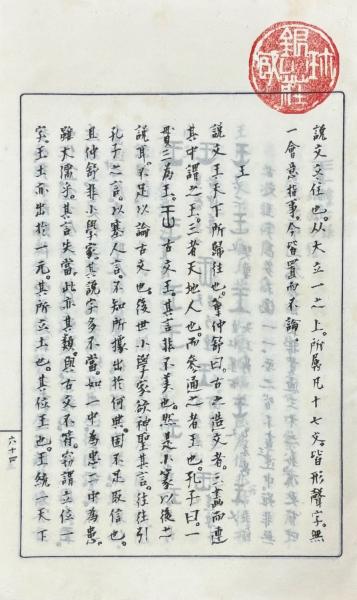 說文立住也。从大立一之上。所屬凡十七文。皆形聲字。無
一會意指事。今皆置而不論。
王
說文王天下所歸往也。董仲舒曰。古之造文者。三畫而連
其中謂之王。三者天地人也。而參通之者王也。孔子曰。一
貫三為王。古文王。其言非不美也。然是小篆以後之
說耳。不足以論古文也。後世小學家欲神聖其言。往往引
孔子之言。以塞人言。不知所據出於何典。固不足取信也。
且仲舒非小學家。其說字多不當。如一中為忠。二中為患。
雖大儒乎。其言失當。此亦其類。與古文不符。竊謂立位一
字。王士亦出於一元。其所立士也。其位王也。王統一天下
六十四